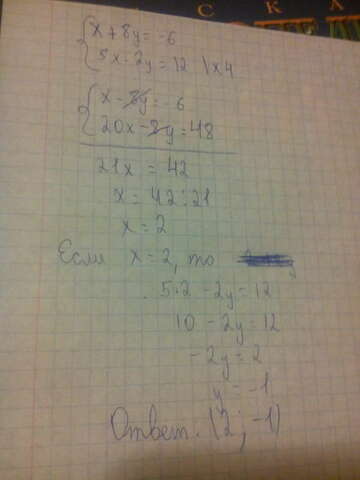 С К
x + 8y = -6
5x - 2y = 12 | x4
x - 8y = -6
20x - 8y = 48
21x = 42
x = 42 : 21
x = 2
Если x = 2, то
5·2 - 2y = 12
10 - 2y = 12
-2y = 2
y = -1
Ответ. (2; -1)